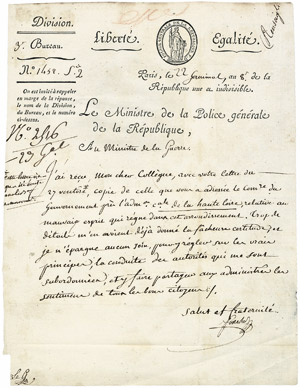 Division.
3e Bureau.
No. 1452. S. 2
On est invité à rappeler
en marge de la réponse,
le nom de la Division,
du Bureau, et le numéro
ci-dessus.
Liberté.
Egalité.
Paris, le 22 Germinal, an 8e de la
République une et indivisible.
Le Ministre de la Police générale
de la République,
Au Ministre de la Guerre.
J'ai reçu mon cher Collègue, avec votre lettre du
27 ventôse, copie de celle que vous a adressé le Com.re du
Gouvernement près l'adm.on c.le de la haute loire, relative au
mauvais esprit qui règne dans cet arrondissement. Trop de
détails m'en avaient déjà donné la fâcheuse certitude, et
je n'épargne aucun soin, pour régler sur les vrais
principes, la conduite des autorités qui me sont
subordonnées, et y faire partager aux administrés les
sentimens de tous les bons citoyens.
Salut et fraternité
Fouché